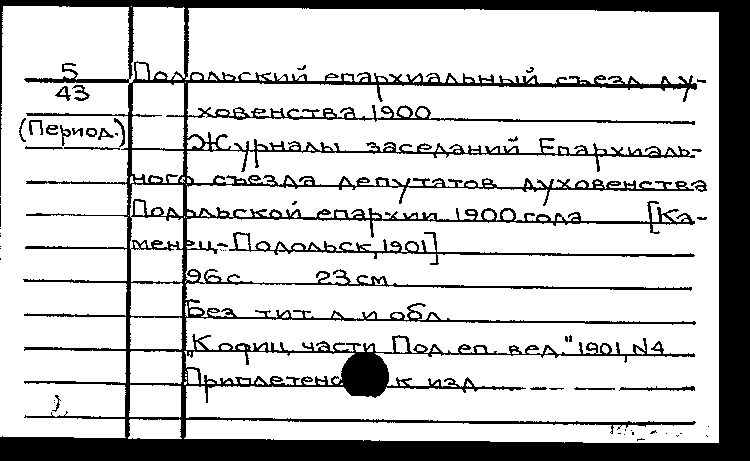 5
43
(Период.)
Подольский епархиальный съезд ду-
ховенства. 1900
Журналы заседаний Епархиаль-
ного съезда депутатов духовенства
Подольской епархии 1900 года [Ка-
менец-Подольск, 1901]
96 с. 23 см.
Без тит. л. и обл.
"К офиц. части Под. еп. вед." 1901, N4
Приплетено к изд.